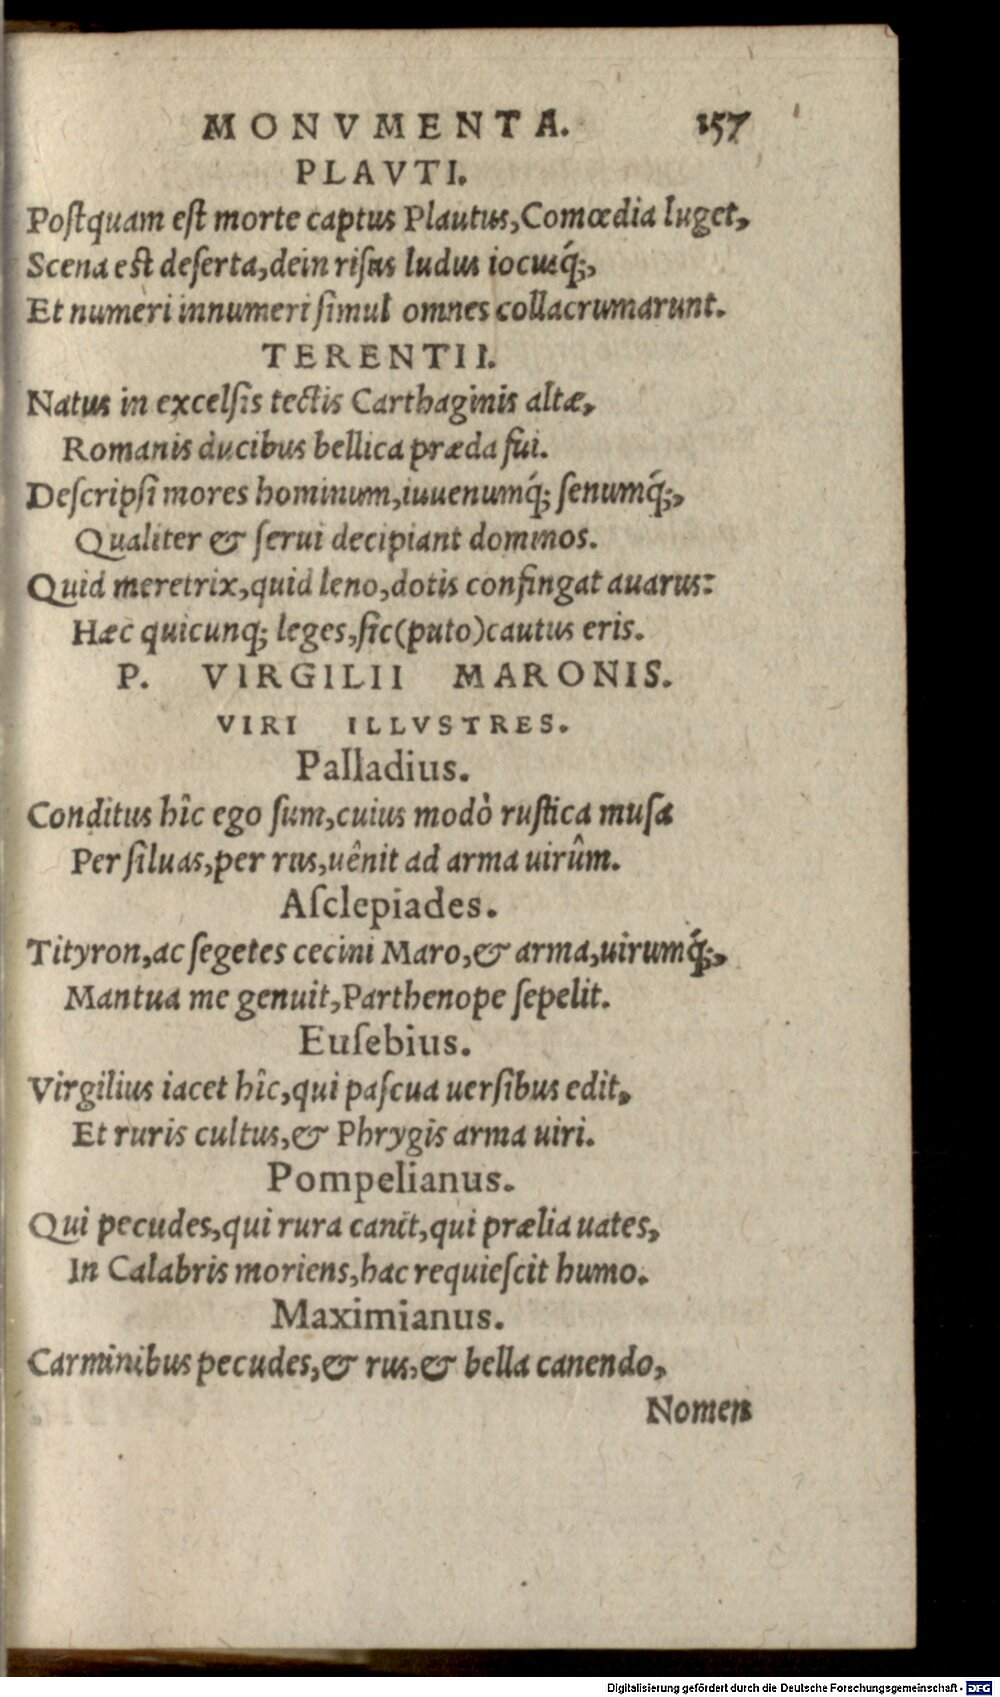 MONVMENTA. 157
PLAVTI.
Poſtquam eſt morte captus Plautus, Comœdia luget,
Scena eſt deſerta, dein riſus ludus iocusq́;,
Et numeri innumeri ſimul omnes collacrumarunt.
TERENTII.
Natus in excelſis tectis Carthaginis altæ,
Romanis ducibus bellica præda fui.
Deſcripſi mores hominum, iuuenumq́; ſenumq́;,
Qualiter & ſerui decipiant dominos.
Quid meretrix, quid leno, dotis confingat auarus:
Hæc quicunq; leges, ſic (puto) cautus eris.
P. VIRGILII MARONIS.
VIRI ILLVSTRES.
Palladius.
Conditus hîc ego ſum, cuius modò ruſtica muſa
Per ſiluas, per rus, uênit ad arma uirûm.
Aſclepiades.
Tityron, ac ſegetes cecini Maro, & arma, uirumq́;,
Mantua me genuit, Parthenope ſepelit.
Euſebius.
Virgilius iacet hîc, qui paſcua uerſibus edit,
Et ruris cultus, & Phrygis arma uiri.
Pompelianus.
Qui pecudes, qui rura canit, qui prælia uates,
In Calabris moriens, hac requieſcit humo.
Maximianus.
Carminibus pecudes, & rus, & bella canendo,
Nomen
Digitalisierung gefördert durch die Deutsche Forschungsgemeinschaft - DFG